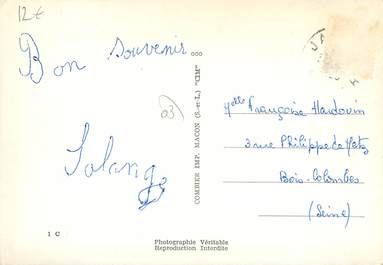 12€
Bon souvenir
Solange
03
COMBIER IMP. MACON (S.-et-L.) "CIM"
Mlle Françoise Hardouin
3 rue Philippe de Metz
Bois-Colombes
(Seine)
1 C
Photographie Véritable
Reproduction Interdite